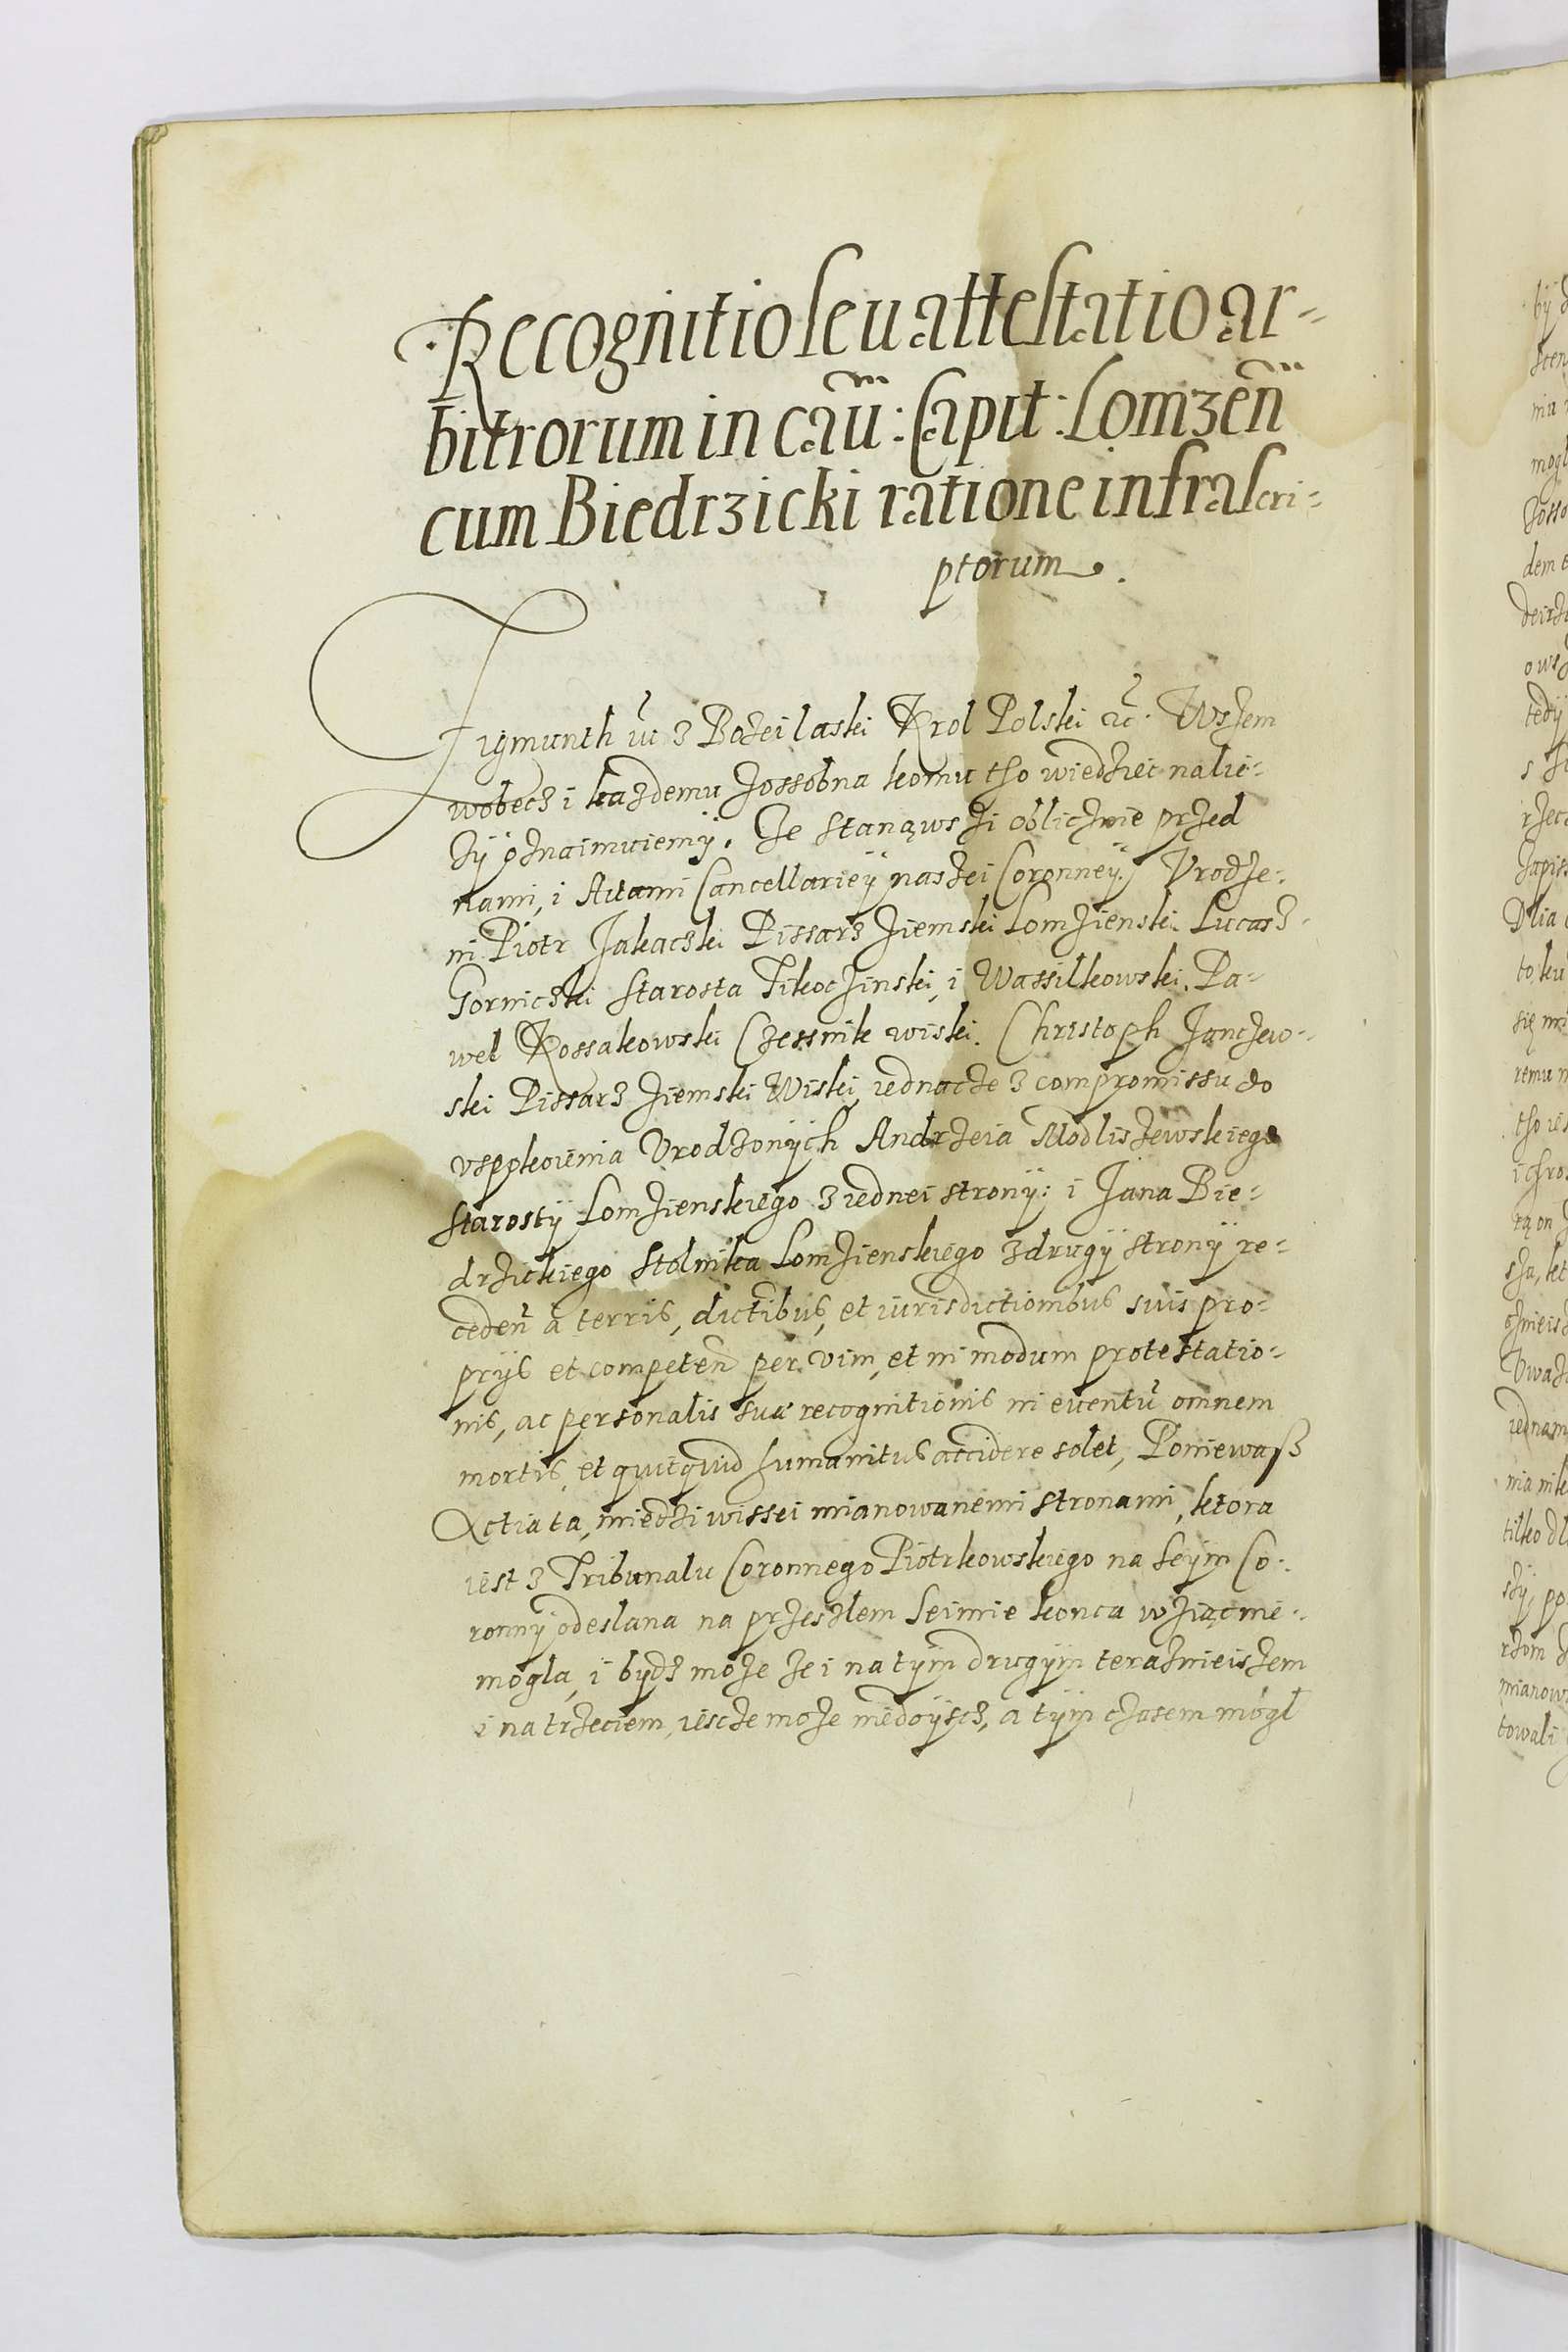 Recognitio seu attestatio ar-
bitrorum in caũ: Capit: Lomzeñ
cum Biedrzicki ratione infrascri-
ptorum.
Zigmunth iii z Bozei laski Krol Polski etc. Wszem
wobecz i kazdemu zossobna komu tho wiedziec nalie-
zÿ oznaimuiemÿ. Ze stanąwszi oblicznie przed
nami, i Actami Cancellariÿ naszei Coronneÿ. Vrodze-
ni Piotr Jakaczki Pissarz Ziemski Lomzienski. Lucasz
Gorniczki Starosta Tikoczinski, i Wassilkowski. Pa-
wel Kossakowski Czessnik wiski. Christoph Janczew-
ski Pissarz Ziemski Wiski, iednacze z compromissu do
vspokoienia Vrodzonÿch Andrzeia Modliszewskiego
Starostÿ Lomzienskiego z iednei stronÿ: i Jana Bie-
drzickiego Stolnika Lomzienskiego z drugÿ stronÿ re-
cedeñ a terris, dictibus, et iurisdictionibus suis pro-
prijs et competeñ per vim, et in modum protestatio-
nis, ac personalis suae recognitionis in euentũ omnem
mortis, et quicquid humanitus accidere solet, Poniewasz
Actia ta, miedzi wissei mianowanemi stronami, ktora
iest z Tribunalu Coronnego Piotrkowskiego na Seÿm Co-
ronnÿ odeslana na przeszlem Seimie konca wziąc nie
mogla, i bÿdz moze ze i na tÿm drugÿm teraznieiszem
i na trzeciem, iescze moze niedoÿscz, a tÿm czasem mogl